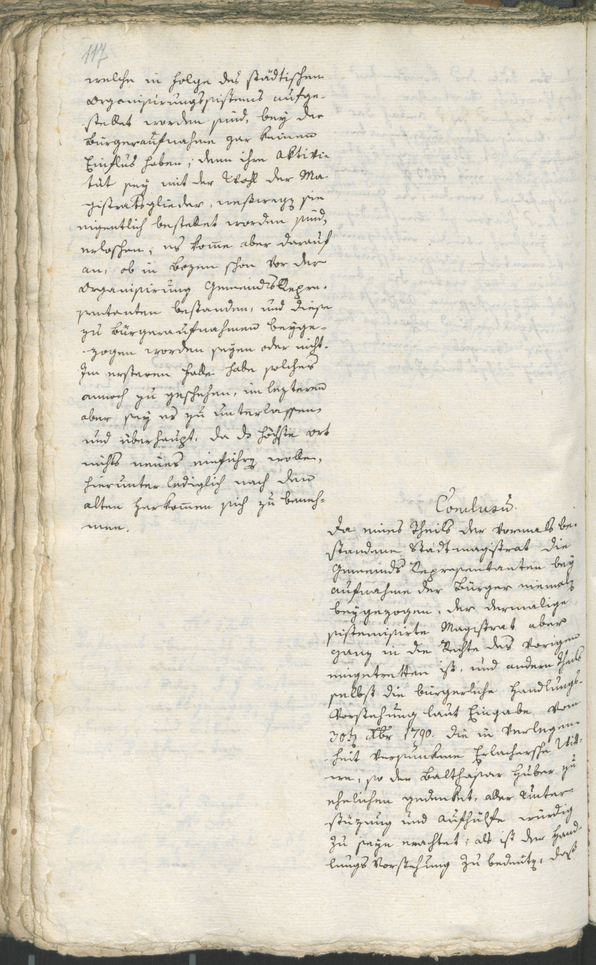 117
welche in Folge des städtischen
Organisirungssistems aufge-
stellet worden sind, bey der
Bürgeraufnahme gar keinen
Einfluß haben; denn ihre Aktivi-
tät sey mit der Wahl der Ma-
gistratsglieder, weßwegen sie
eigentlich bestellet worden sind,
erloschen; es komme aber darauf
an, ob in Bozen schon vor der
Organisirung Gemeinds Repre-
sentanten bestanden, und diese
zu Bürgeraufnahmen beyge-
zogen worden seyen oder nicht.
Im ersteren Falle habe solches
annoch zu geschehen, im lezteren
aber sey es zu unterlassen,
und überhaupt, da die höchste Ort
nichts neues einführen wollen,
hierunter lediglich nach dem
alten Herkommen sich zu beneh-
men.
Conclusum.
Da eines Theils der vormals be-
standene Stadtmagistrat die
Gemeinds Representanten bey
Aufnahme der Bürger niemals
beygezogen, der dermalige
sistemisirte Magistrat aber
ganz in die Rechte des vorigen
eingetretten ist, und andern Theils
selbst die bürgerliche Handlungs-
Vorstehung laut Eingabe vom
30ten Xbr 1790. die in Verlegen-
heit versunkene Erlachersche Wit-
we, so der Balthasar Huber zu
ehelichen gedenket, aller Unter-
stüzung und Aufhülfe würdig
zu seyn erachtet; als ist der Hand-
lungs Vorstehung zu bedeuten, daß